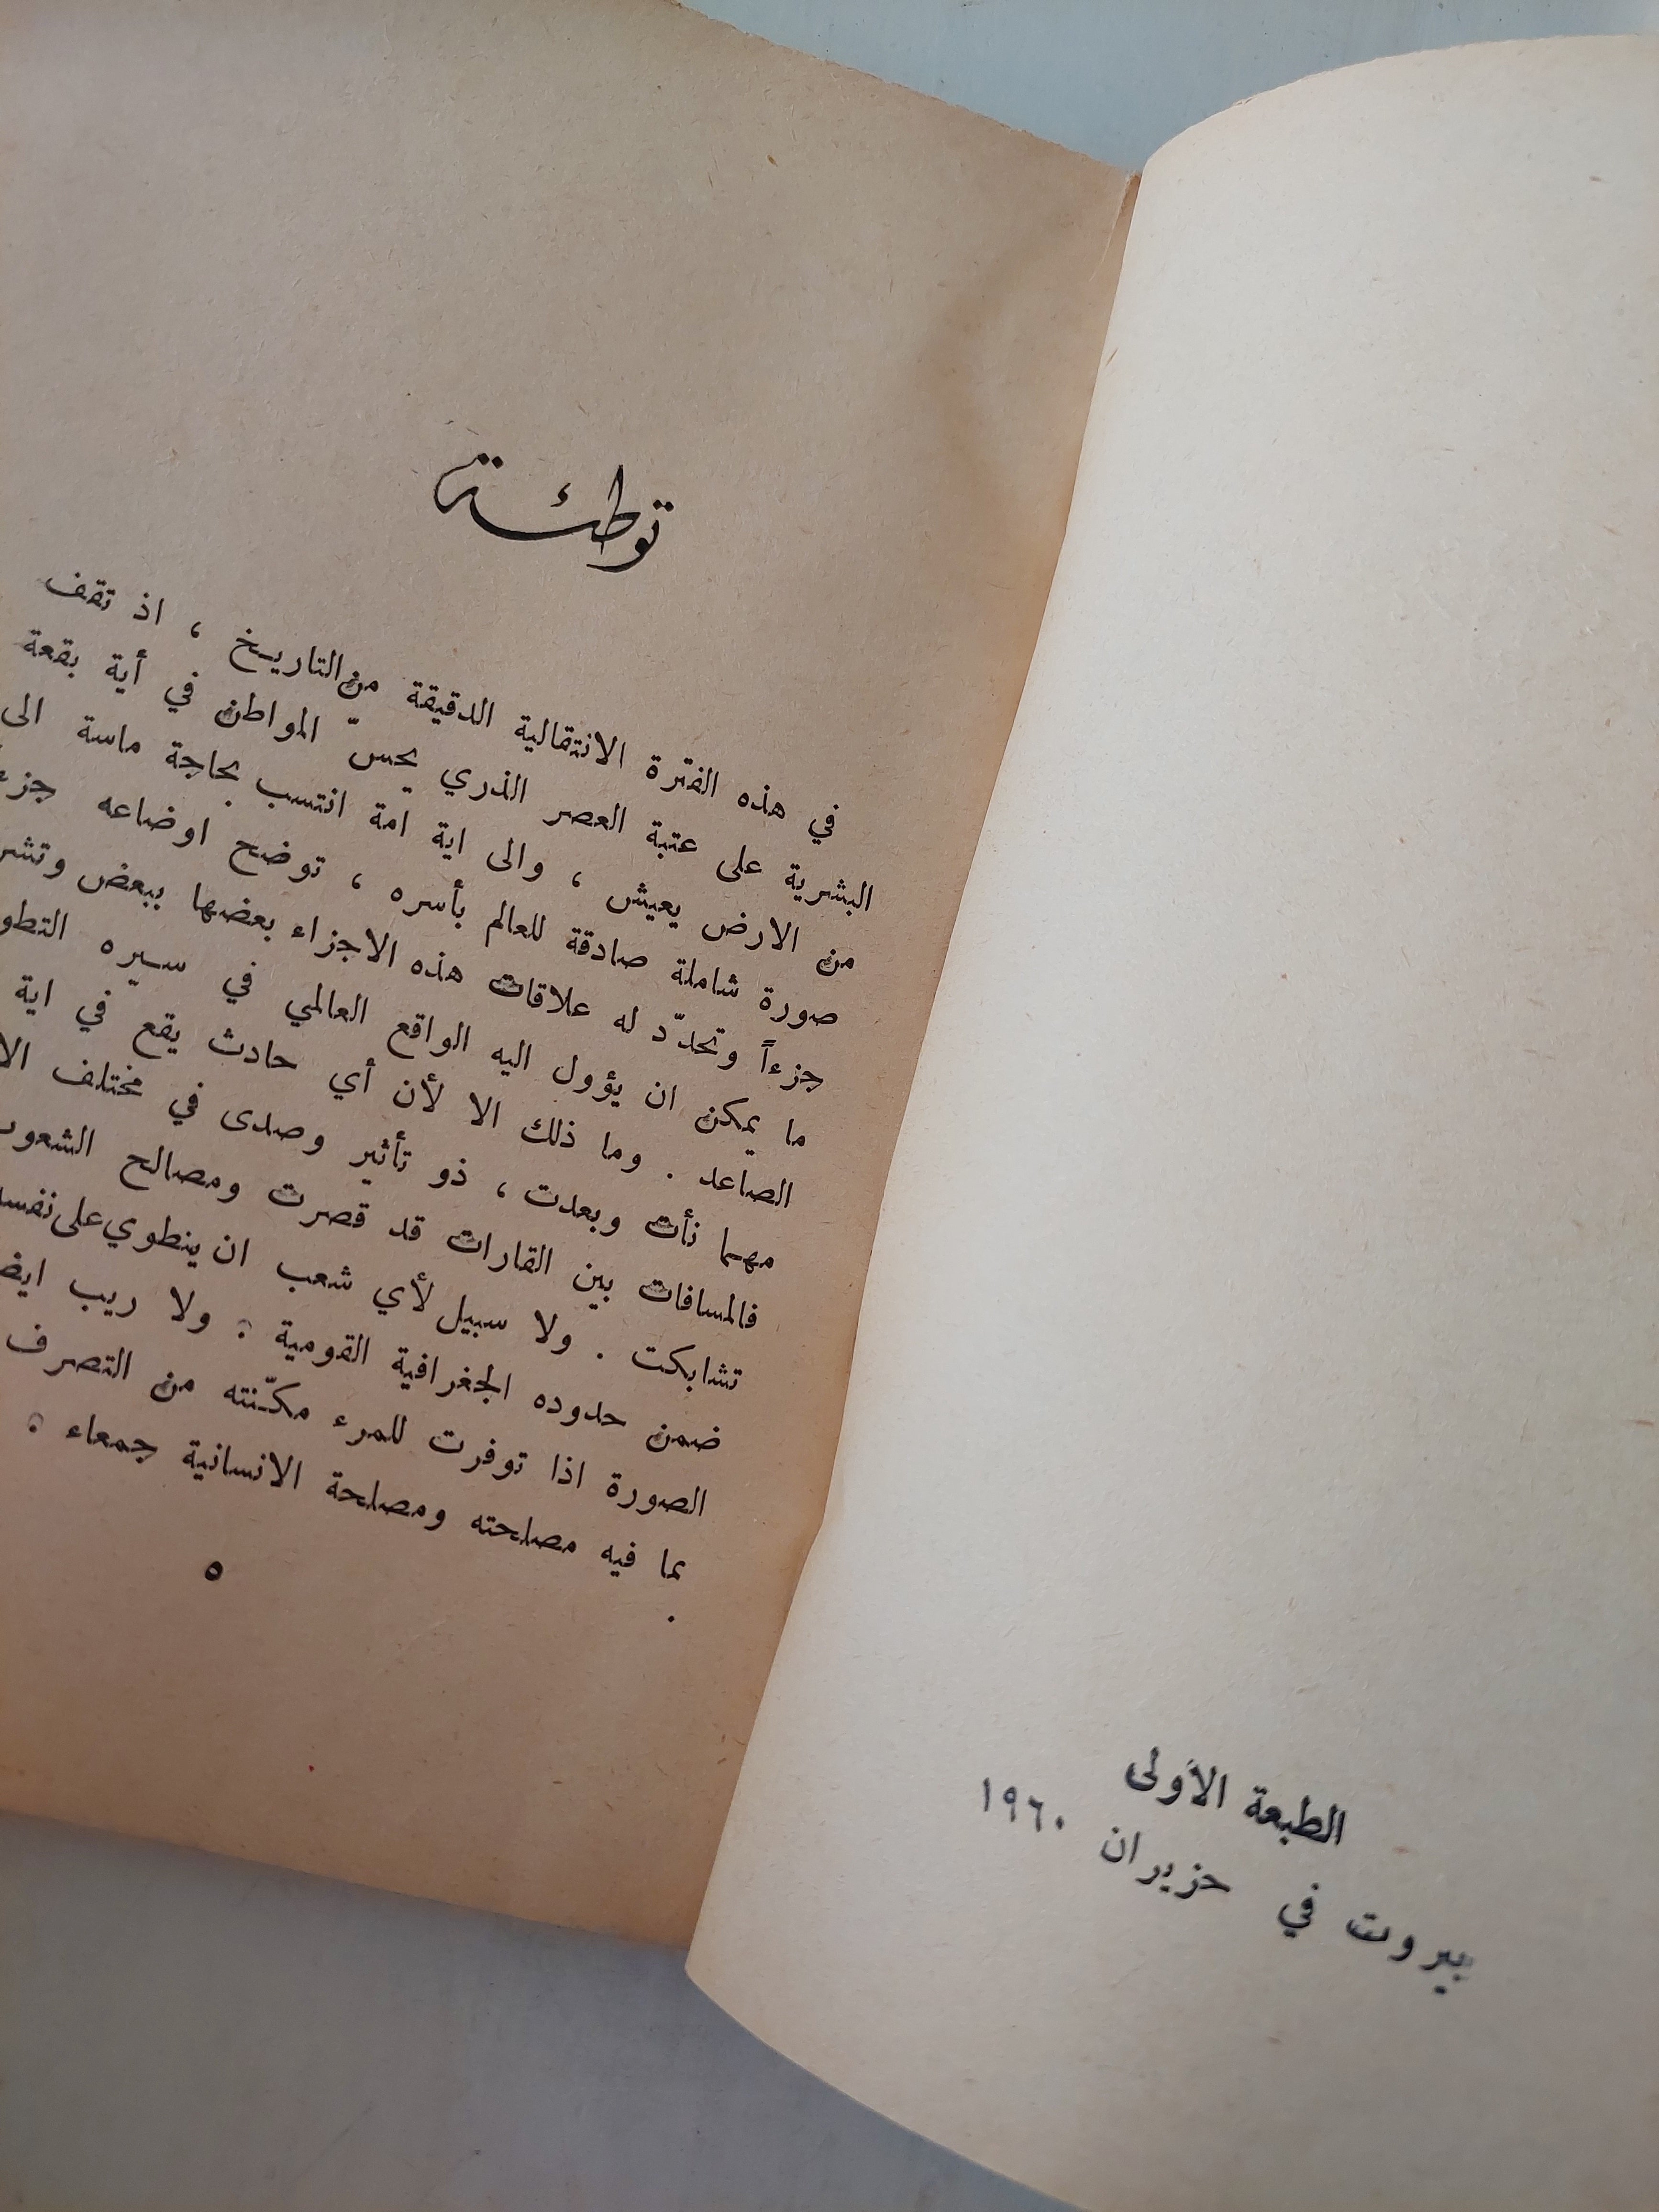 الطبعة الأولى
بيروت في حزيران ١٩٦٠
توطئة
في هذه الفترة الانتقالية الدقيقة من التاريخ ، اذ تقف
البشرية على عتبة العصر الذري يحسّ المواطن في أية بقعة
من الارض يعيش ، والى اية امة انتسب بحاجة ماسة الى
صورة شاملة صادقة للعالم بأسره ، توضح اوضاعه
جزءاً وتحدّد له علاقات هذه الاجزاء بعضها ببعض
ما يمكن ان يؤول اليه الواقع العالمي في سيره
الصاعد . وما ذلك الا لأن أي حادث يقع في اية
مهما نأت وبعدت ، ذو تأثير وصدى في مختلف
فالمسافات بين القارات قد قصرت ومصالح
تشابكت . ولا سبيل لأي شعب ان ينطوي على
ضمن حدوده الجغرافية القومية . ولا ريب
الصورة اذا توفرت للمرء مكّنته من التصرف
بما فيه مصلحته ومصلحة الانسانية جمعاء .
٥